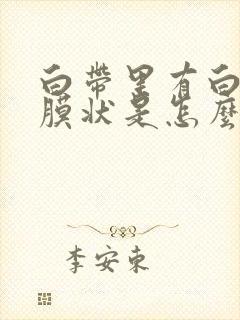 白帶里有白
膜状是怎麼
李安東